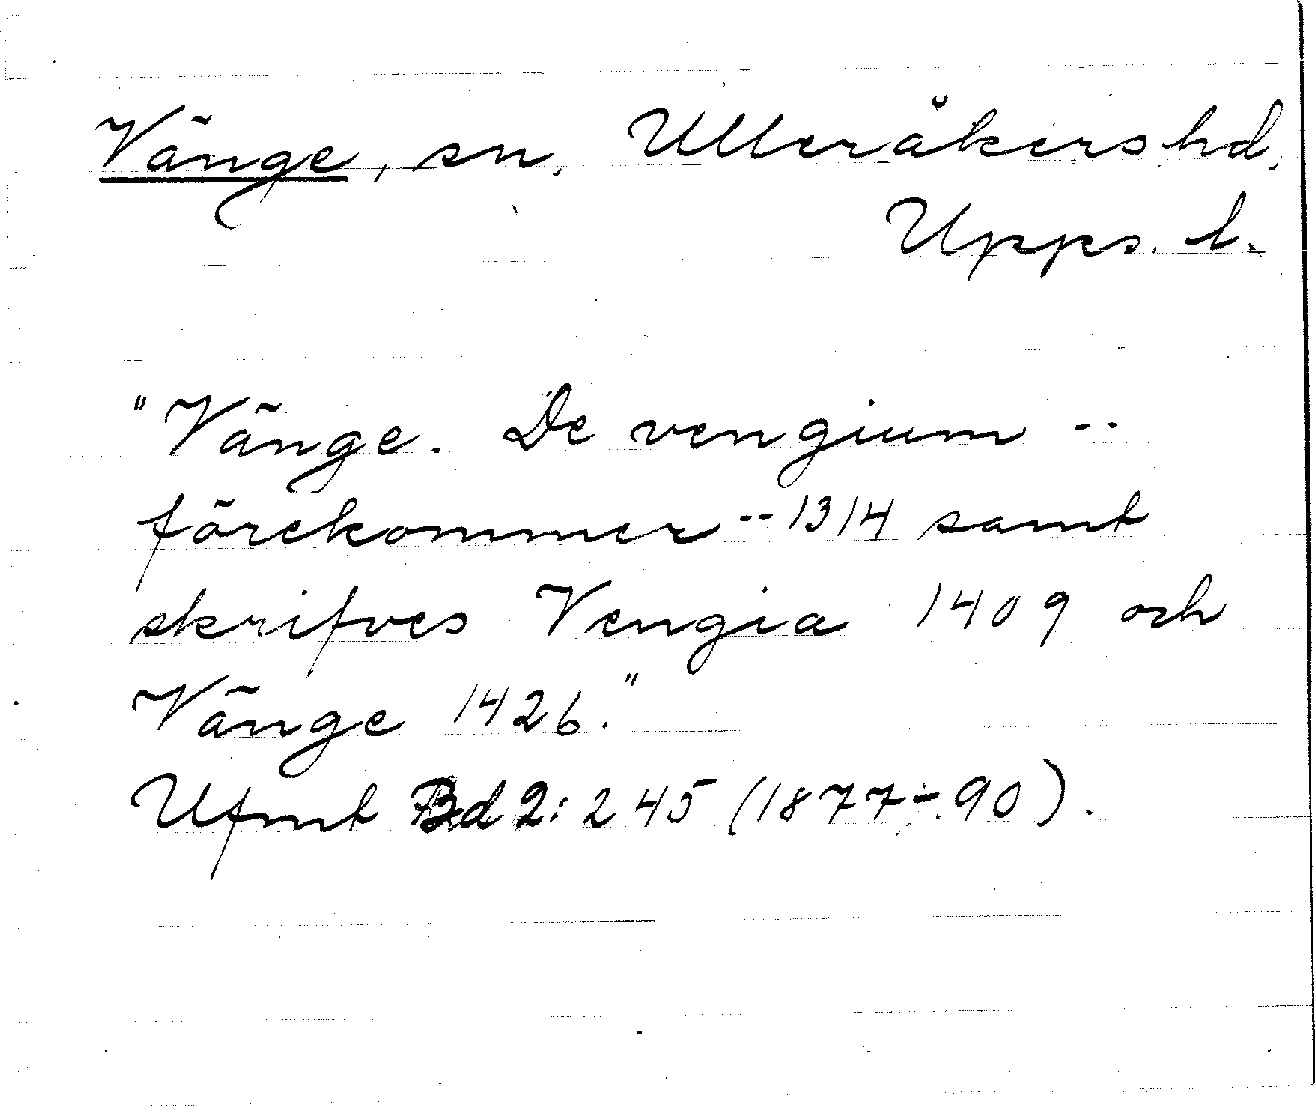 Vänge, sn, Ulleråkers hd.
Upps. l.
"Vänge. De vengium --
förekommer -- 1314 samt
skrifves Vengia 1409 och
Vänge 1426."
Ufmt Bd 2: 245 (1877-90).